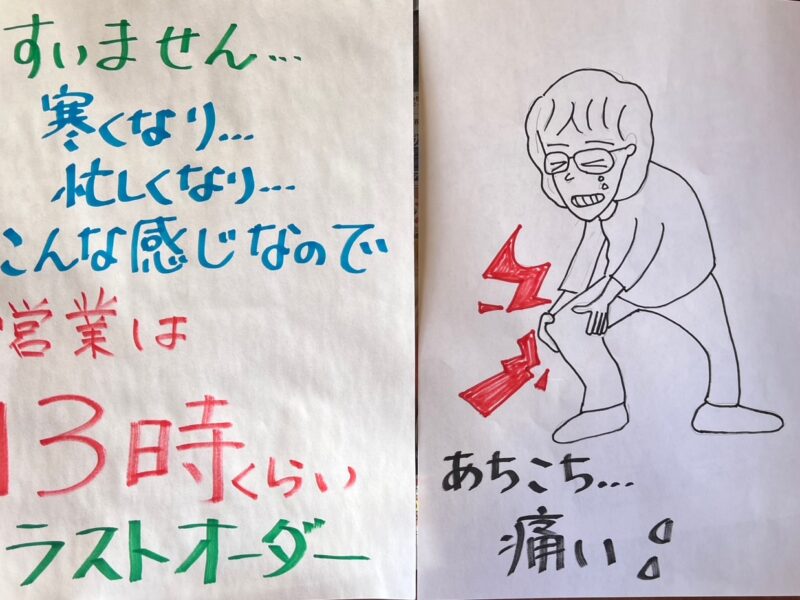 すいません...
寒くなり...
忙しくなり...
こんな感じなので
営業は
13時くらい
ラストオーダー
あちこち...
痛い